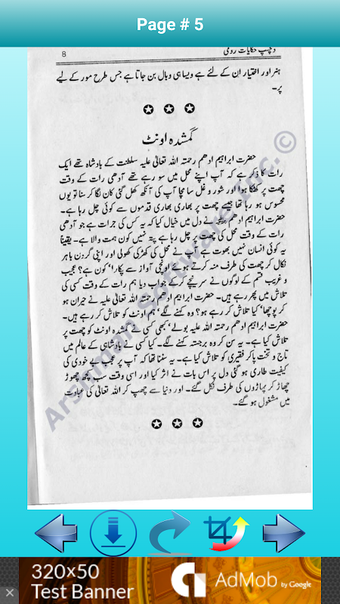 Page # 5
دلچسپ حکایات رومی
8
ہنر اور اختیار ان کے لئے ہے ویسا ہی وبال بن جاتا ہے جس طرح مور کے لیے
پر۔
گمشدہ اونٹ
حضرت ابراہیم ادھم رحمتہ اللہ تعالیٰ علیہ سلطنت کے بادشاہ تھے ایک
رات کا ذکر ہے کہ آپ اپنے محل میں سو رہے تھے آدھی رات کے وقت
چھت پر کھٹکا ہوا اور شور و غل سا مچا آپ کی آنکھ کھل گئی کان لگا کر سنا تو یوں
محسوس ہو رہا تھا جیسے چھت پر بھاری بھاری قدموں سے کوئی چل رہا ہے۔
حضرت ابراہیم ادھم نے دل میں خیال کیا کہ یہ کس کی جرات ہے جو آدھی
رات کے وقت محل کی چھت پر چل رہا ہے پتہ نہیں کون ہمت والا ہے۔ یقیناً
یہ کوئی انسان نہیں بھوت ہے آپ نے محل کی کھڑکی کھولی اور اپنی گردن باہر
نکال کر چھت کی طرف منہ کرتے ہوئے اونچی آواز سے پکارا' کون ہے؟ عجیب
و غریب قسم کے لوگوں نے سر نیچے کر کے جواب دیا ہم رات کے وقت کسی کی
تلاش میں پھر رہے ہیں۔ حضرت ابراہیم ادھم رحمتہ اللہ تعالیٰ علیہ نے حیران ہو
کر پوچھا' کیا تلاش کر رہے ہو؟ وہ کہنے لگے' ہم اونٹ کو تلاش کر رہے ہیں۔
حضرت ابراہیم ادھم رحمتہ اللہ علیہ بولے' کبھی کسی نے گمشدہ اونٹ کو چھت پر
تلاش کیا ہے۔ یہ سن کر وہ برجستہ کہنے لگے۔ کیا کسی نے بادشاہی کے عالم میں
تاج و تخت پا کر فقیری کو تلاش کیا ہے۔ یہ سننا تھا کہ آپ پر عجیب بے خودی کی
کیفیت طاری ہو گئی دل پر اس بات نے اثر کیا اور اسی وقت سب کچھ چھوڑ
چھاڑ کر پہاڑوں کی طرف نکل گئے۔ اور دنیا سے چھپ کر اللہ تعالیٰ کی عبادت
میں مشغول ہو گئے۔
320x50
Test Banner
AdMob by Google